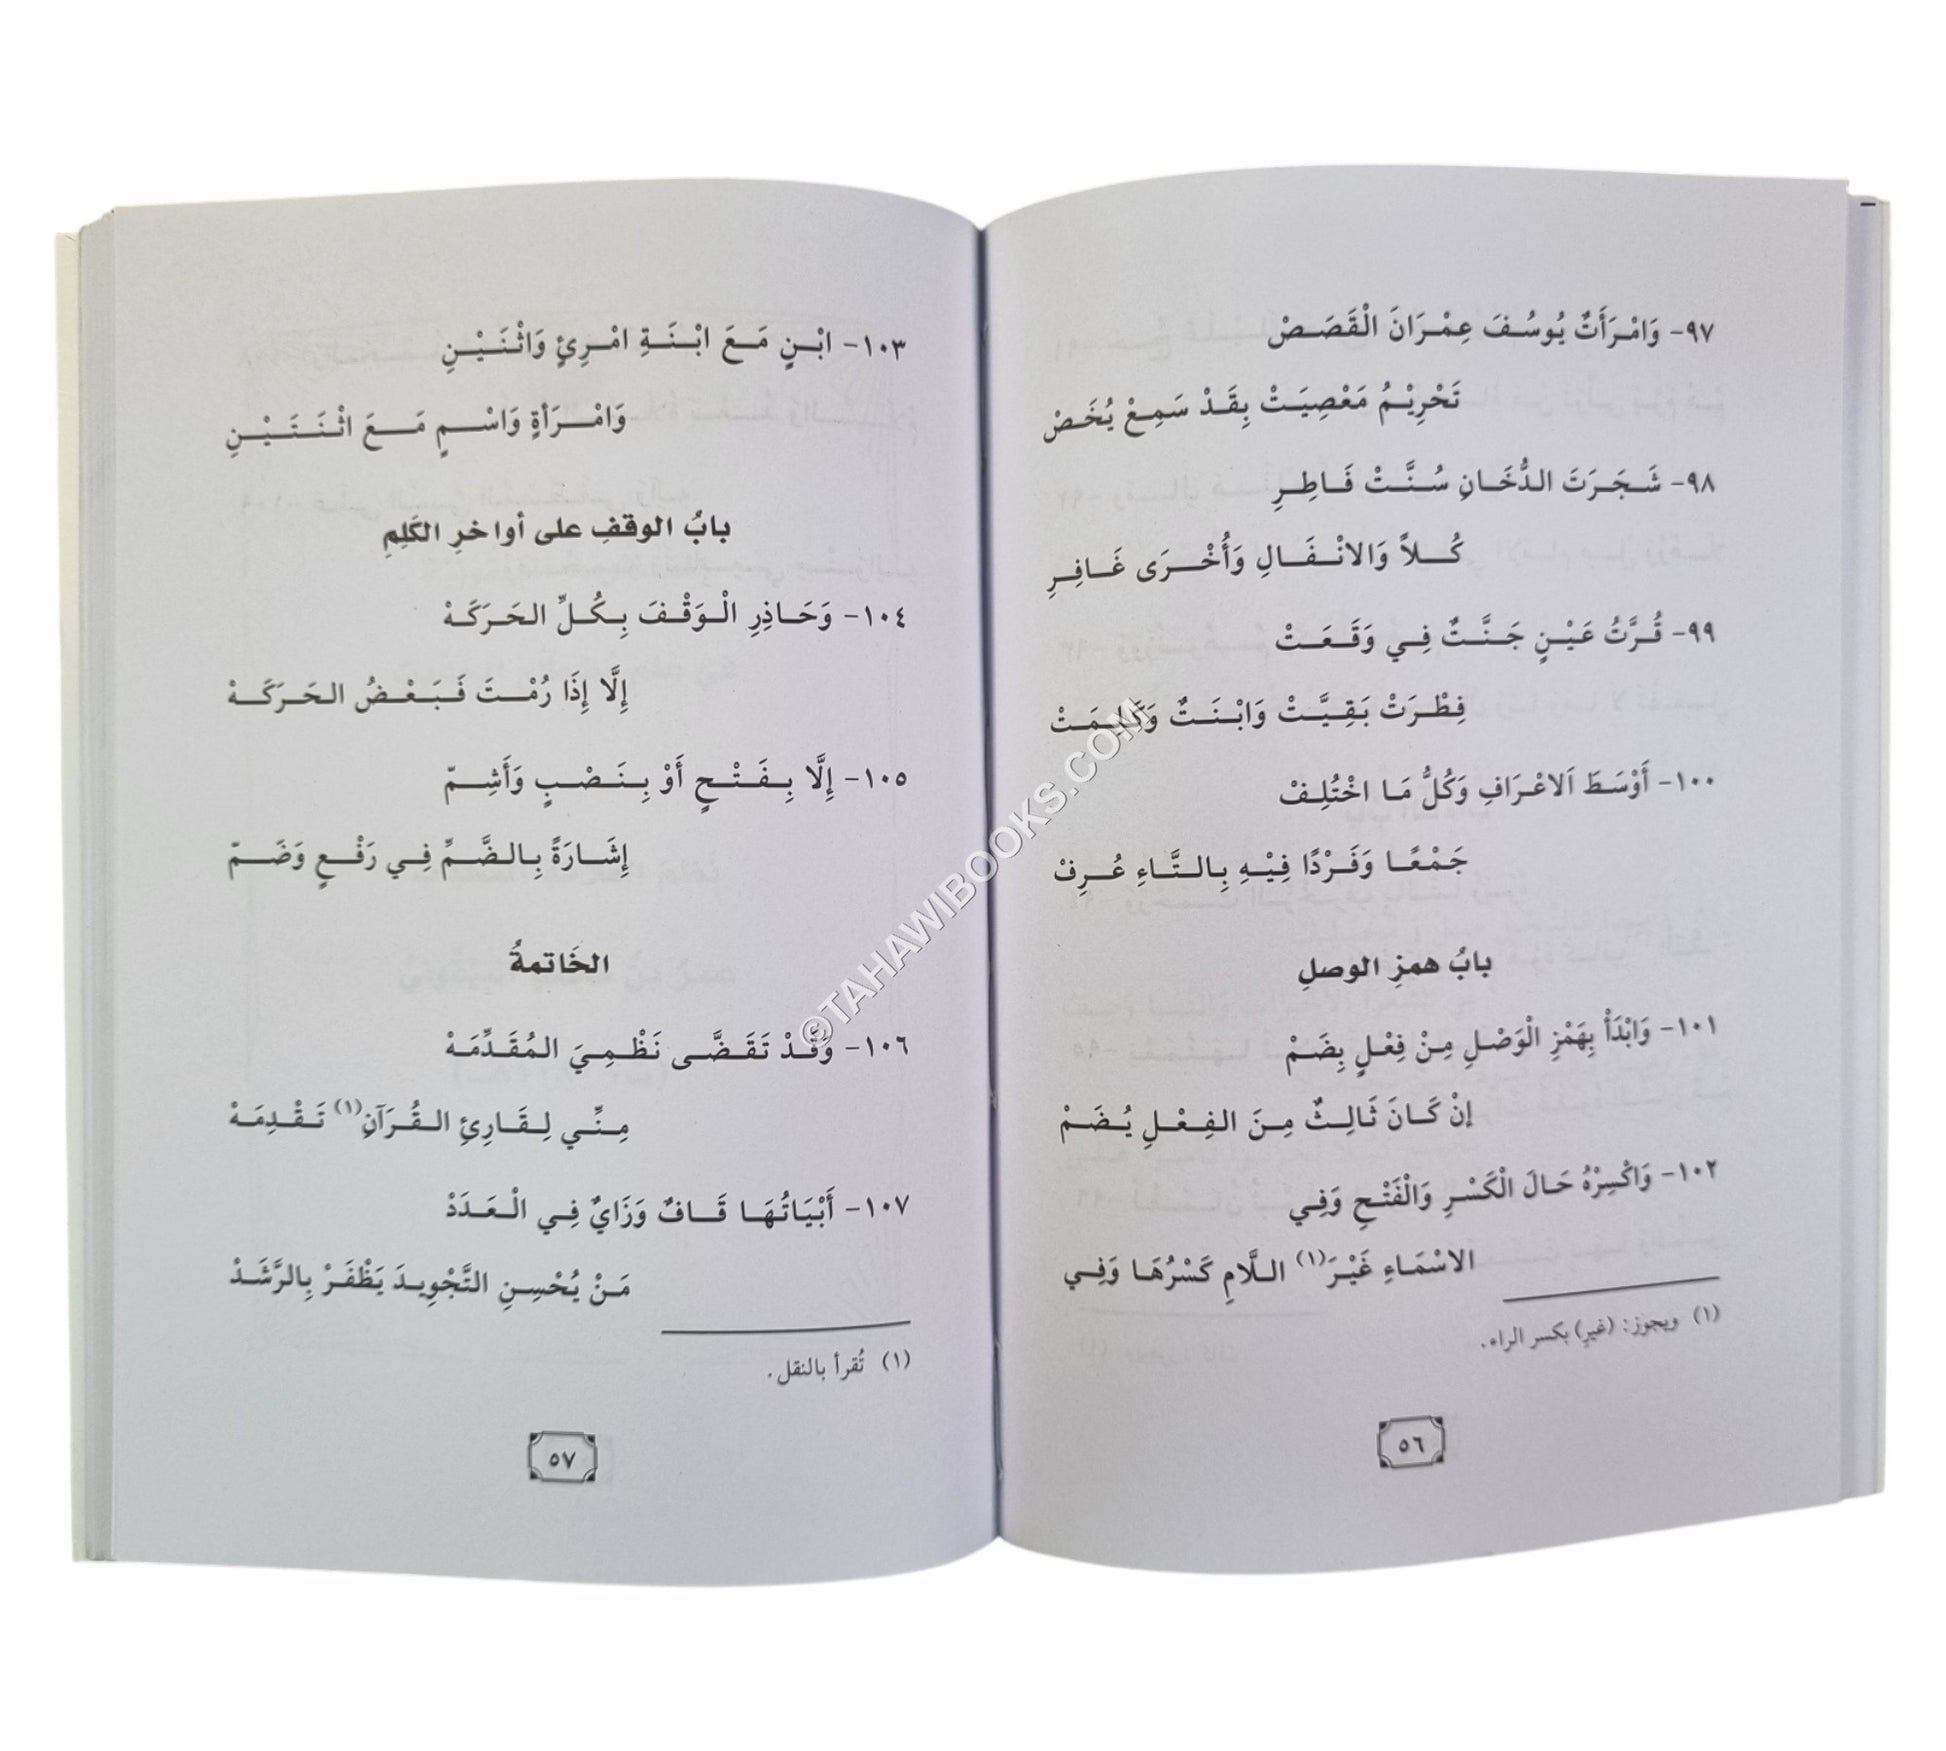 ٩٧- وَامْرَأَتٌ يُوسُفَ عِمْرَانَ الْقَصَصْ
تَحْرِيْمُ مَعْصِيَتْ بِقَدْ سَمِعْ يُخَصْ
٩٨- شَجَرَتَ الدُّخَانِ سُنَّتْ فَاطِرِ
كُلاً وَالانْفَالِ وَأُخْرَى غَافِرِ
٩٩- قُرَّتُ عَيْنٍ جَنَّتٌ فِي وَقَعَتْ
فِطْرَتْ بَقِيَّتْ وَابْنَتٌ وَكَلِمَتْ
١٠٠- أَوْسَطَ اَلاعْرَافِ وَكُلُّ مَا اخْتُلِفْ
جَمْعًا وَفَرْدًا فِيْهِ بِالتَّاءِ عُرِفْ
بابُ همزِ الوصلِ
١٠١- وَابْدَأْ بِهَمْزِ الْوَصْلِ مِنْ فِعْلٍ بِضَمْ
إنْ كَانَ ثَالِثٌ مِنَ الفِعْلِ يُضَمْ
١٠٢- وَاكْسِرْهُ حَالَ الْكَسْرِ وَالْفَتْحِ وَفِي
الاسْمَاءِ غَيْرَ(١) اللَّامِ كَسْرُهَا وَفِي
(١) ويجوز: (غيرِ) بكسر الراء.
٥٦
١٠٣- ابْنٍ مَعَ ابْنَةِ امْرِئٍ وَاثْنَيْنِ
وَامْرَأةٍ وَاسْمٍ مَعَ اثْنَتَيْنِ
بابُ الوقفِ على أواخرِ الكَلِمِ
١٠٤- وَحَاذِرِ الْوَقْفَ بِكُلِّ الحَرَكَهْ
إِلَّا إِذَا رُمْتَ فَبَعْضُ الحَرَكَهْ
١٠٥- إِلَّا بِفَتْحٍ أَوْ بِنَصْبٍ وَأَشِمّ
إِشَارَةً بِالضَّمِّ فِي رَفْعٍ وَضَمّ
الخَاتمةُ
١٠٦- وَقَدْ تَقَضَّى نَظْمِيَ المُقَدِّمَهْ
مِنِّي لِقَارِئِ القُرَآنِ(١) تَقْدِمَهْ
١٠٧- أَبْيَاتُهَا قَافٌ وَزَايٌ فِي الْعَدَدْ
مَنْ يُحْسِنِ التَّجْوِيدَ يَظْفَرْ بِالرَّشَدْ
(١) تُقرأ بالنقل.
٥٧
©TAHAWIBOOKS.COM